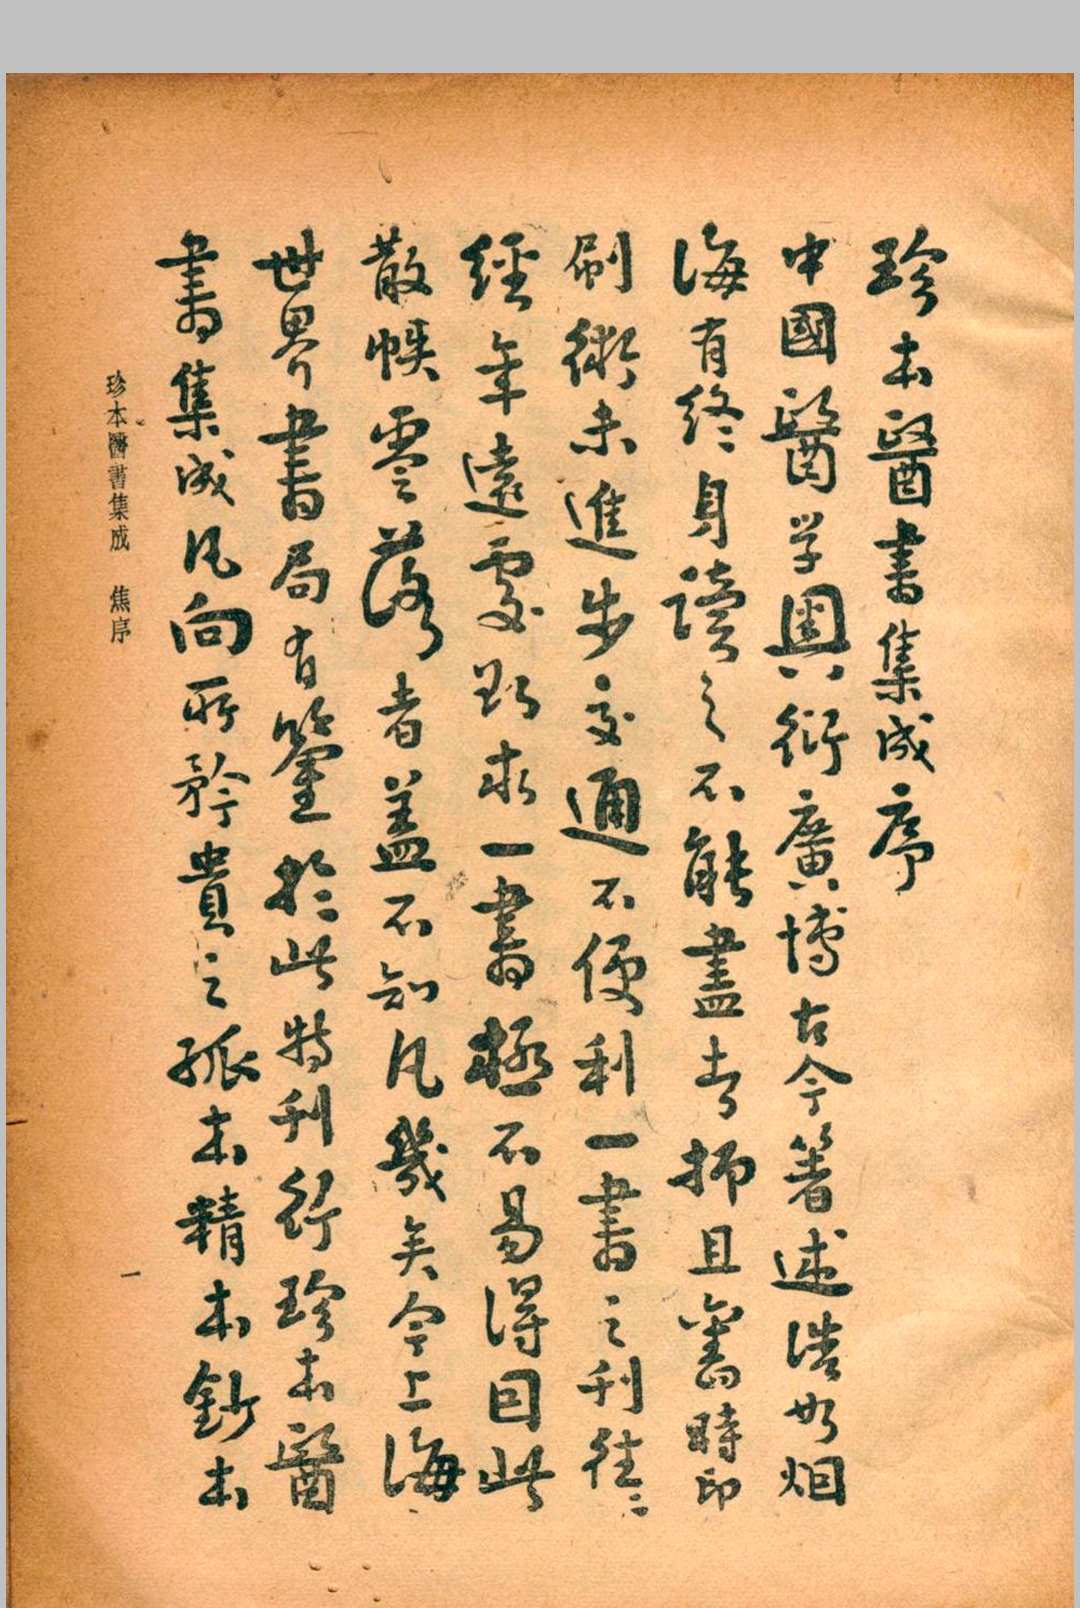 珍本醫書集成序
中國醫学奧衍廣博古今著述浩如烟
海有終身讀之不能盡者抑且舊時印
刷術未進步交通不便利一書之刊往〻
經年遠處跂求一書極不易得因此
散帙零落者蓋不知凡幾矣今上海
世界書局有鑒於此特刊行珍本醫
書集成凡向所矜貴之孤本精本鈔本
珍本醫書集成 焦序
一